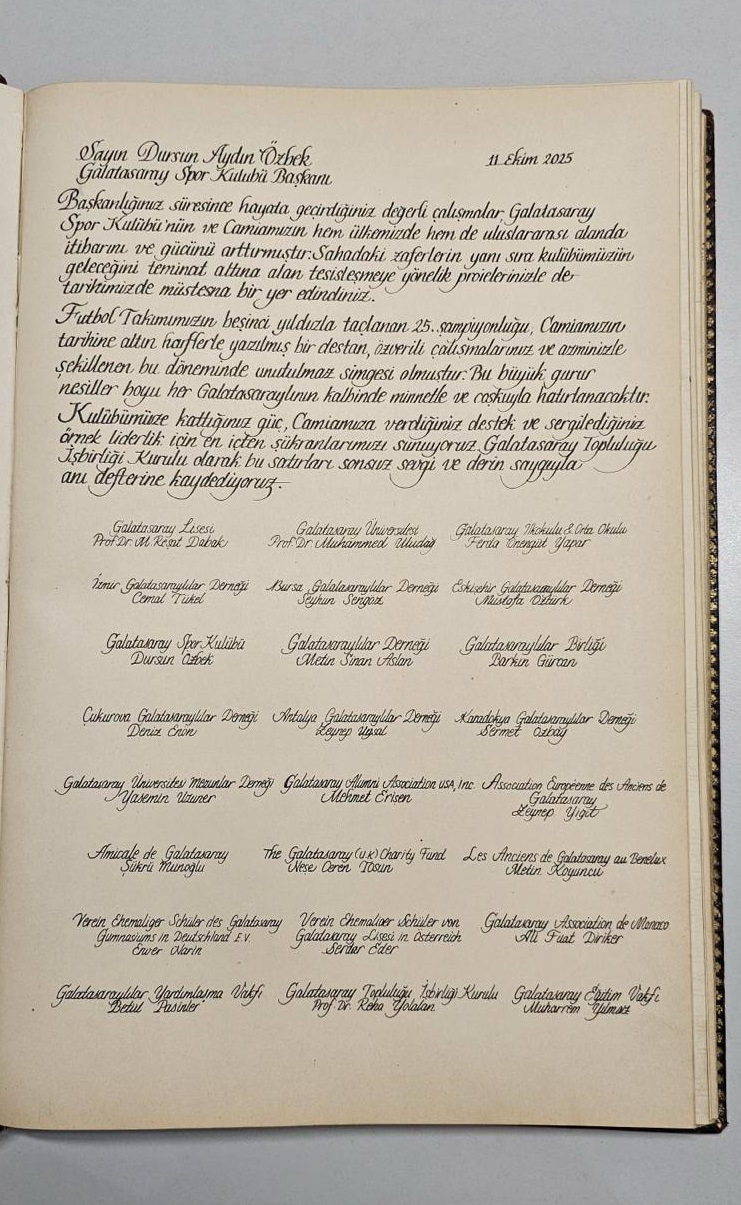 Sayın Dursun Aydın Özbek
11 Ekim 2025
Galatasaray Spor Kulübü Başkanı
Başkanlığınız süresince hayata geçirdiğiniz değerli çalışmalar, Galatasaray
Spor Kulübü'nün ve Camiamızın hem ülkemizde hem de uluslararası alanda
itibarını ve gücünü arttırmıştır. Sahadaki zaferlerin yanı sıra kulübümüzün
geleceğini teminat altına alan tesisleşmeye yönelik projelerinizle de
tarihimizde müstesna bir yer edindiniz.
Futbol Takımımızın beşinci yıldızla taçlanan 25. şampiyonluğu, Camiamızın
tarihine altın harflerle yazılmış bir destan, özverili çalışmalarınız ve azminizle
şekillenen bu döneminde unutulmaz simgesi olmuştur. Bu büyük gurur
nesiller boyu her Galatasaraylının kalbinde minnetle ve coşkuyla hatırlanacaktır.
Kulübümüze kattığınız güç, Camiamıza verdiğiniz destek ve sergilediğiniz
örnek liderlik için en içten şükranlarımızı sunuyoruz. Galatasaray Topluluğu
İşbirliği Kurulu olarak bu satırları sonsuz sevgi ve derin saygıyla
anı defterine kaydediyoruz.
Galatasaray Lisesi
Prof. Dr. M. Reşat Dabak
Galatasaray Üniversitesi
Prof. Dr. Muhammed Uludağ
Galatasaray İlkokulu & Orta Okulu
Ferda Önengüt Yapar
İzmir Galatasaraylılar Derneği
Cemal Tükel
Bursa Galatasaraylılar Derneği
Seyhun Şengöz
Eskişehir Galatasaraylılar Derneği
Mustafa Öztürk
Galatasaray Spor Kulübü
Dursun Özbek
Galatasaraylılar Derneği
Metin Sinan Aslan
Galatasaraylılar Birliği
Barkın Gürcan
Çukurova Galatasaraylılar Derneği
Deniz Enön
Antalya Galatasaraylılar Derneği
Zeynep Uysal
Karadokya Galatasaraylılar Derneği
Sermet Özbay
Galatasaray Üniversitesi Mezunlar Derneği
Yasemin Uzuner
Galatasaray Alumni Association USA, Inc.
Mehmet Erisen
Association Européenne des Anciens de
Galatasaray
Zeynep Yiğit
Amicale de Galatasaray
Şükrü Munoğlu
The Galatasaray (U.K) Charity Fund
Neşe Ceren Tosun
Les Anciens de Galatasaray au Benelux
Metin Koyuncu
Verein Ehemaliger Schüler des Galatasaray
Gymnasiums in Deutschland E.V.
Enver
Verein Ehemaliger Schüler von
Galatasaray Lisesi in Österreich
Serdar Eder
Galatasaray Association de Monaco
Ali Fuat Diriker
Galatasaraylılar Yardımlaşma Vakfı
Betül Pasinler
Galatasaray Topluluğu İşbirliği Kurulu
Prof. Dr. Reha Yolalan
Galatasaray Eğitim Vakfı
Muharrem Yılmaz